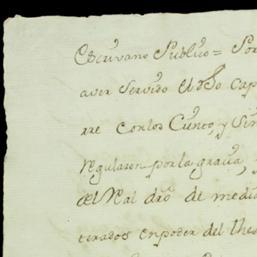 Escriuano Publico = Por
aver Servido el dho Cap
rre Con los Cinco, y Sin
regulasen por la gracia,
del Real dro de media
terados en poder del thes